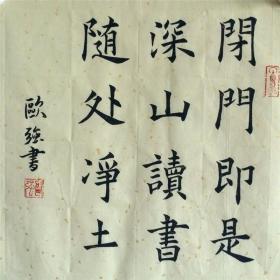 閉門即是
深山讀書
随处凈土
歐強書